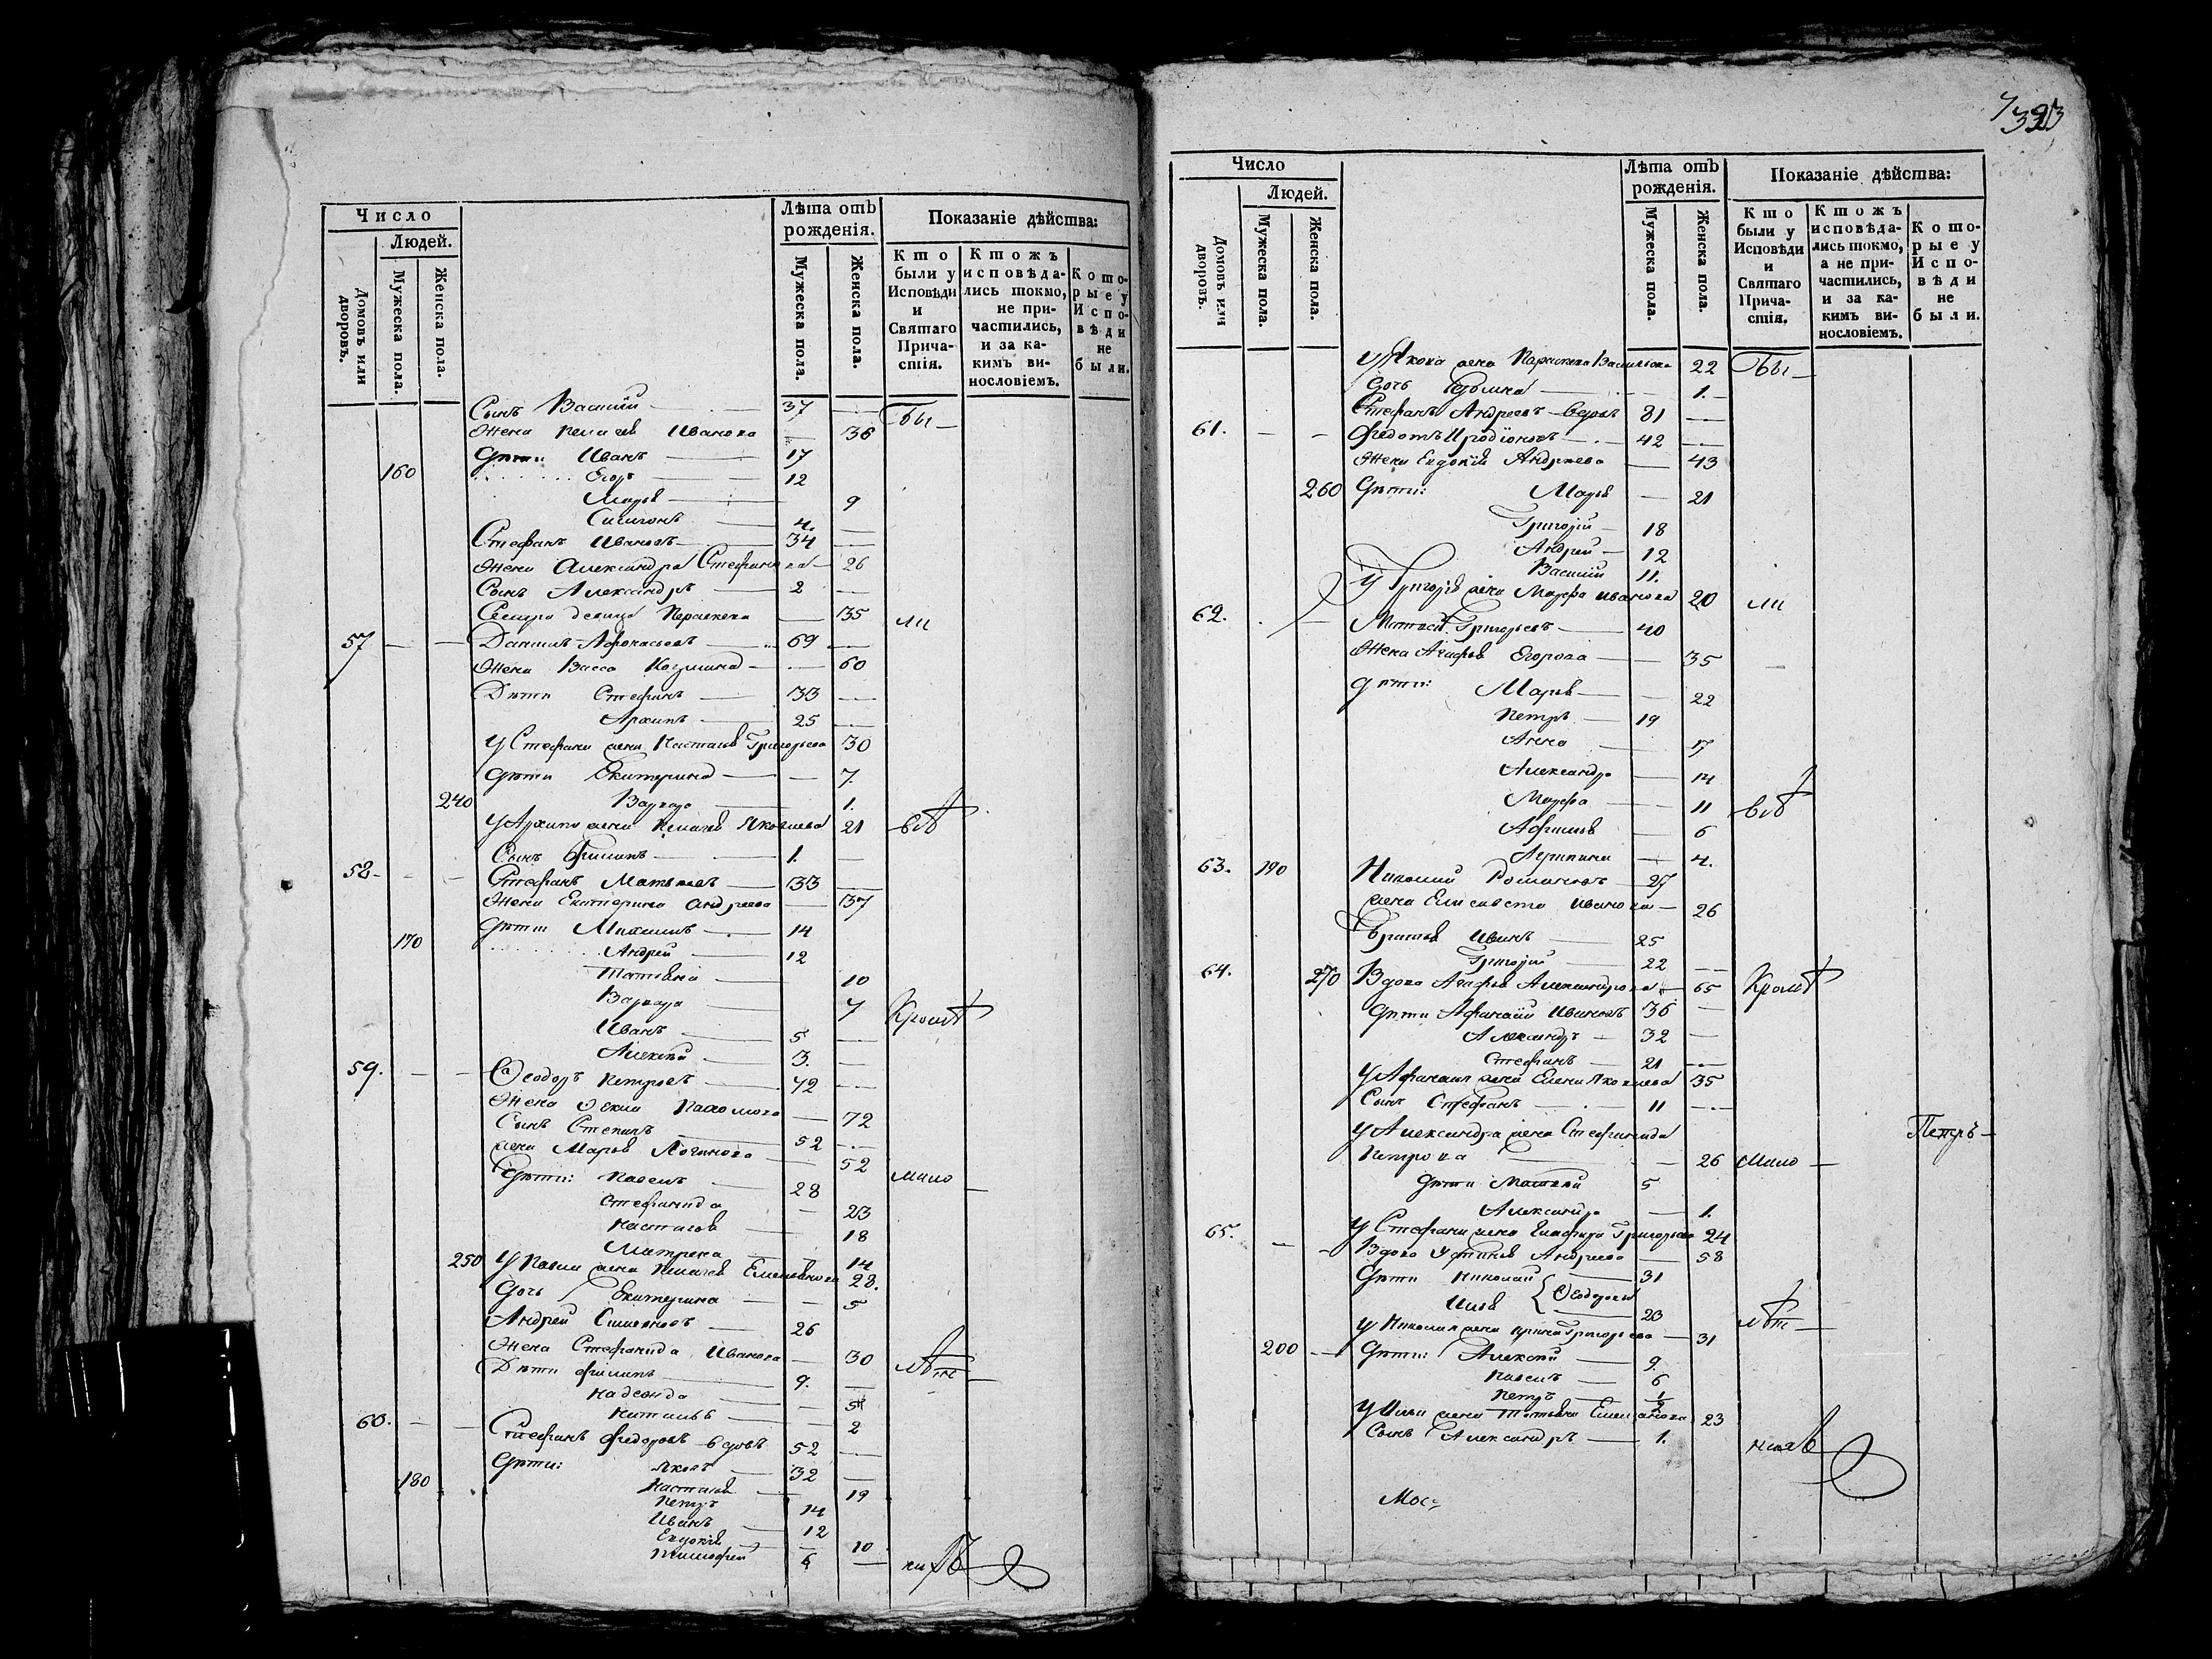 Число
Людей.
Домовъ или дворовъ.
Мужеска пола.
Женска пола.
Лѣта отъ рожденія.
Мужеска пола.
Женска пола.
Показаніе дѣйства:
Кто были у Исповѣди и Святаго Причастія.
Ктожъ исповѣдались токмо, не причастились, и за какимъ винословіемъ.
Которые у Исповѣди не были.
Сынъ Василій 37 Бы
Жена Пелагея Иванова 36
Дѣти Иванъ 17
160 Егоръ 12
Марья 9
4.
Стефанъ Ивановъ 34
Жена Александра Стефанова 26
Сынъ Александръ 2
Сестра девица Параскева 35 ли
57 Даниилъ Афонасьевъ 69
Жена Васса Козмина 60
Дѣти Стефанъ 33
Архипъ 25
У Стефана жена Настасья Григорьева 30
Дѣти Екатерина 7.
240 Варвара 1.
У Архипа жена Пелагея Яковлева 21 всѣ
Сынъ Филипъ 1.
58 Стефанъ Матвеевъ 33
Жена Екатерина Андреева 37
Дѣти Михаилъ 14
170 Андрей 12
Татьяна 10
Варвара 7 Кромѣ
Иванъ 5
Алексѣй 3.
59. Ѳеодоръ Петровъ 72
Жена Ѳекла Пахомова 72
Сынъ Степанъ 52
жена Марья Логинова 52
Дѣти: Павелъ 28 мало
Стефанида 23
Настасья 18
Матрена 14
250 У Павла жена Пелагея Емельянова 28.
Дочь Екатерина 5
Андрей Симеоновъ 26
Жена Стефанида Иванова 30 лѣт
Дѣти Филипъ 9.
Надежда 5
Наталья 2
60. Стефанъ Федоровъ вдовъ 52
Дѣти: Яковъ 32
180 Настасья 19
Петръ 14
Иванъ 12
Евдокія 10
Тимофей 6 нихъ
393
Число
Людей.
Домовъ или дворовъ.
Мужеска пола.
Женска пола.
Лѣта отъ рожденія.
Мужеска пола.
Женска пола.
Показаніе дѣйства:
Кто были у Исповѣди и Святаго Причастія.
Ктожъ исповѣдались токмо, а не причастились, и за какимъ винословіемъ.
Которые у Исповѣди не были.
У Якова жена Параскева Васильева 22 Бы
Дочь 1.
Стефанъ Андреевъ вдовъ 81
61. Федотъ Иродіоновъ 42
Жена Евдокія Андреева 43
260 Дѣти: Марья 21
Григорій 18
Андрей 12
Василій 11.
У Григорія жена Марфа Иванова 20 ли
62. Григорьевъ 40
Жена Агафья Егорова 35
Дѣти: Марья 22
Петръ 19
Анна 17
Александра 14
Марфа 11 всѣ
6
4.
63. 190 Николай Романовъ 27
жена Елисавета Иванова 26
Братья Иванъ 25
Григорій 22
64. 270 Вдова Агафья Александрова 65 Кромѣ
Дѣти Афанасій Ивановъ 36
Александръ 32
Стефанъ 21
У Афанасія жена Елена Яковлева 35
Сынъ Стефанъ 11
У Александра жена Стефанида Петръ
Петрова 26 мало
Дѣти Матвей 5
Александра 1.
У Стефана жена Григорьева 24
65. Вдова Устинья Андреева 58
Дѣти Николай { Ѳеодоровы 31
Илья 23 лѣт
У Николая жена Ирина Григорьева 31
200 Дѣти: Алексѣй 9
Павелъ 6
Петръ 1/2
У Ильи жена Татьяна Емельянова 23
Сынъ Александръ 1.